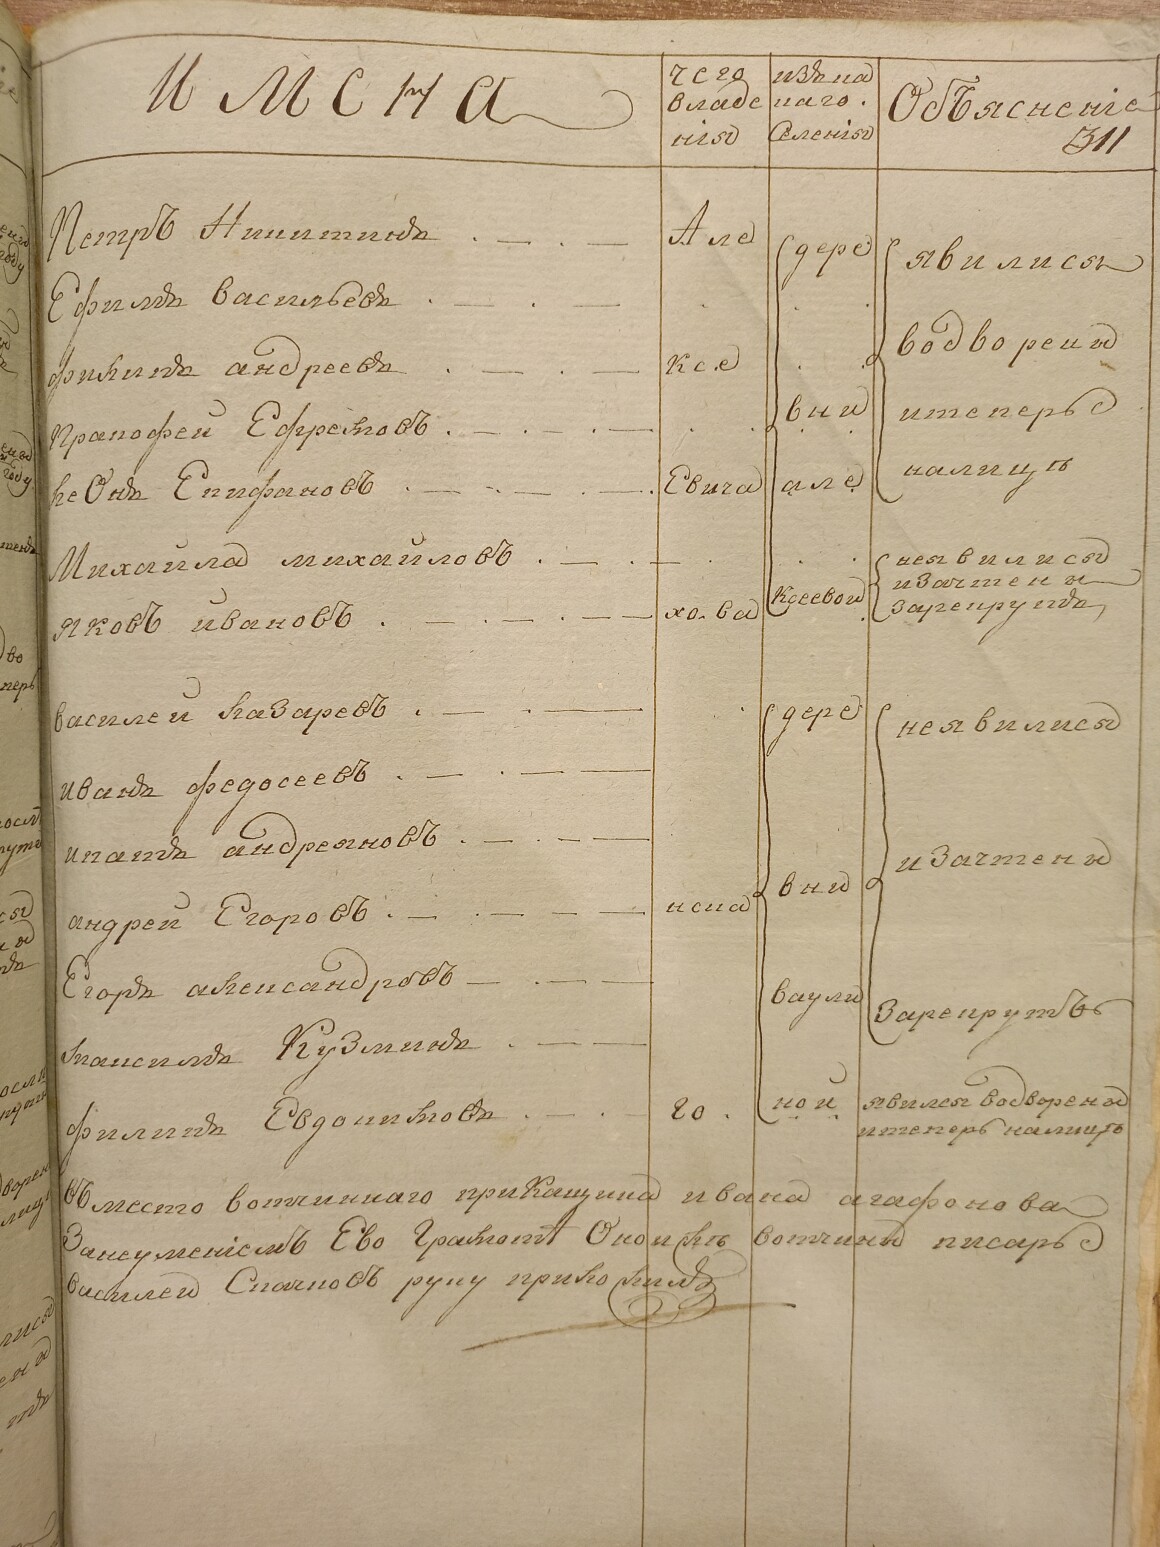 Имена
чего владе нія
изъ ка наго. Селенія
Объясненіе
311
Петръ Никитинъ Але дере явились
Ефимъ васильевъ
водворены
филипъ андреевъ ксе
Пракофей Ефремовъ вни итеперь
леонъ Епифановъ Евича але налицъ
Михайла михайловъ неявились
ксеевой изачтены
яковъ ивановъ хо.ва зарекрутъ
василей лазаревъ дере неявились
иванъ федосеевъ
ипатъ андреяновъ изачтены
андрей Егоровъ нена вни
Егоръ александровъ ваули зарекрутъ
максимъ Кузминъ
филипъ Евдокимовъ го. ной явился водворены
итеперь налицъ
вместо вотчиннаго прикащика ивана агафонова
Занеуменіемъ Ево Грамоте Оной вотчины писарь
василей руку приложилъ